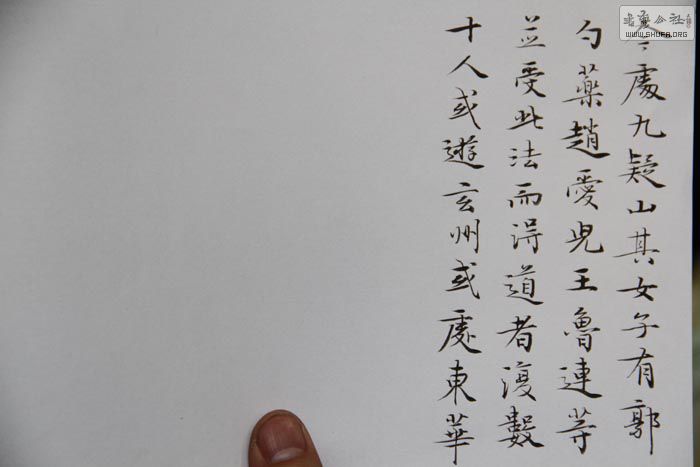 處九疑山其女子有郭
勺藥趙愛兒王魯連等
並受此法而得道者復數
十人或遊玄州或處東華
WWW.SHUFA.ORG